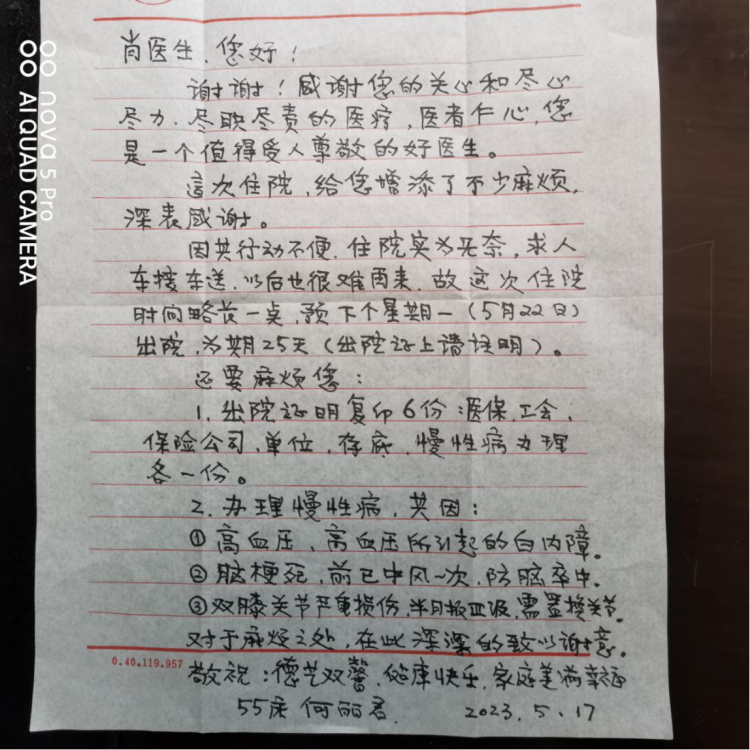 尚医生、您好！
谢谢！感谢您的关心和尽心
尽力、尽职尽责的医疗，医者仁心，您
是一个值得受人尊敬的好医生。
這次住院，给您增添了不少麻烦，
深表感谢。
因其行动不便，住院实为无奈，求人
车接车送，以后也很难再来，故这次住院
时间略长一点，预下个星期一（5月22日）
出院，为期25天（出院证上请注明）。
还要麻烦您：
1、出院证明复印6份：医保、工会、
保险公司、单位、存底、慢性病办理
各一份。
2、办理慢性病，其因：
①高血压，高血压所引起的白内障。
②脑梗死，前已中风一次，防脑卒中。
③双膝关节严重损伤，半月板亚级，需置换关节。
对于麻烦之处，在此深深的致以谢意。
敬祝：德艺双馨，健康快乐，家庭美满幸福
55床 何丽君 2023.5.17
0.40.119.957
nova 5 Pro
AI QUAD CAMERA